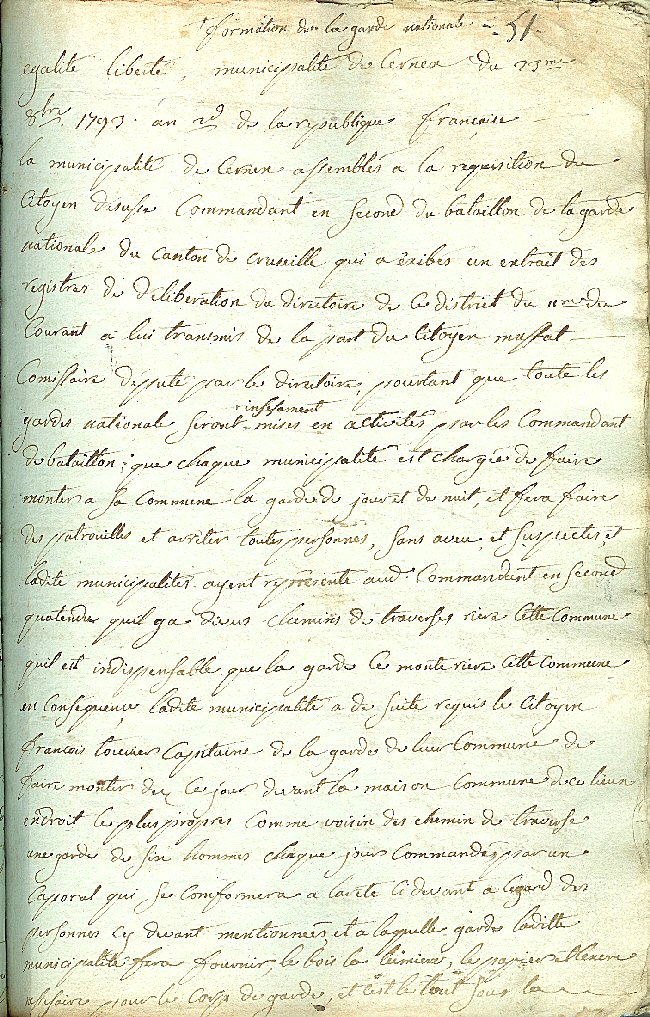 formation de la garde nationale - 51 -
egalité liberté, municipalité de Cernex du 23me
8bre 1793 an 2d de la republique française
la municipalité de Cernex assemblés a la requisition du
Citoyen Commandant en second du bataillon de la garde
nationale du Canton de Cruseille qui a exibés un extrait des
registres de deliberation du directoire de ce district du du
Courant a lui transmis de la part du Citoyen massat
Comissaire député par le directoire, pourtant que toute les
gardes nationale seront insesament mises en activités par les Commandant
de bataillon; que chaque municipalité est chargée de faire
monter a sa Commune la garde de jour et de nuit, et fera faire
des patrouilles et arreter toutes personnes, sans aveu, et suspectes, et
ladite municipalités ayent representé aud. Commandant en second
quatendu quil ya divers chemins de traverses riere cette Commune
quil est indispensable que la garde ce monte riere cette Commune
en Consequence ladite municipalité a de suite requis le Citoyen
françois Capitaine de la garde de leur Commune de
faire monter dez ce jour devant la maison Commune de ce lieux
endroit le plus propres comme voisin des chemin de traverse
une garde de six hommes chaque jours Commandés par un
Caporal qui se comformera a larete Cidevant a legard des
personnes cy devant mentionnées et a laquelle garde ladite
municipalité fera fournir, le bois la lumiere, le papier et lencre
nesesaire pour le Corps de garde, et c'est le tout sous la